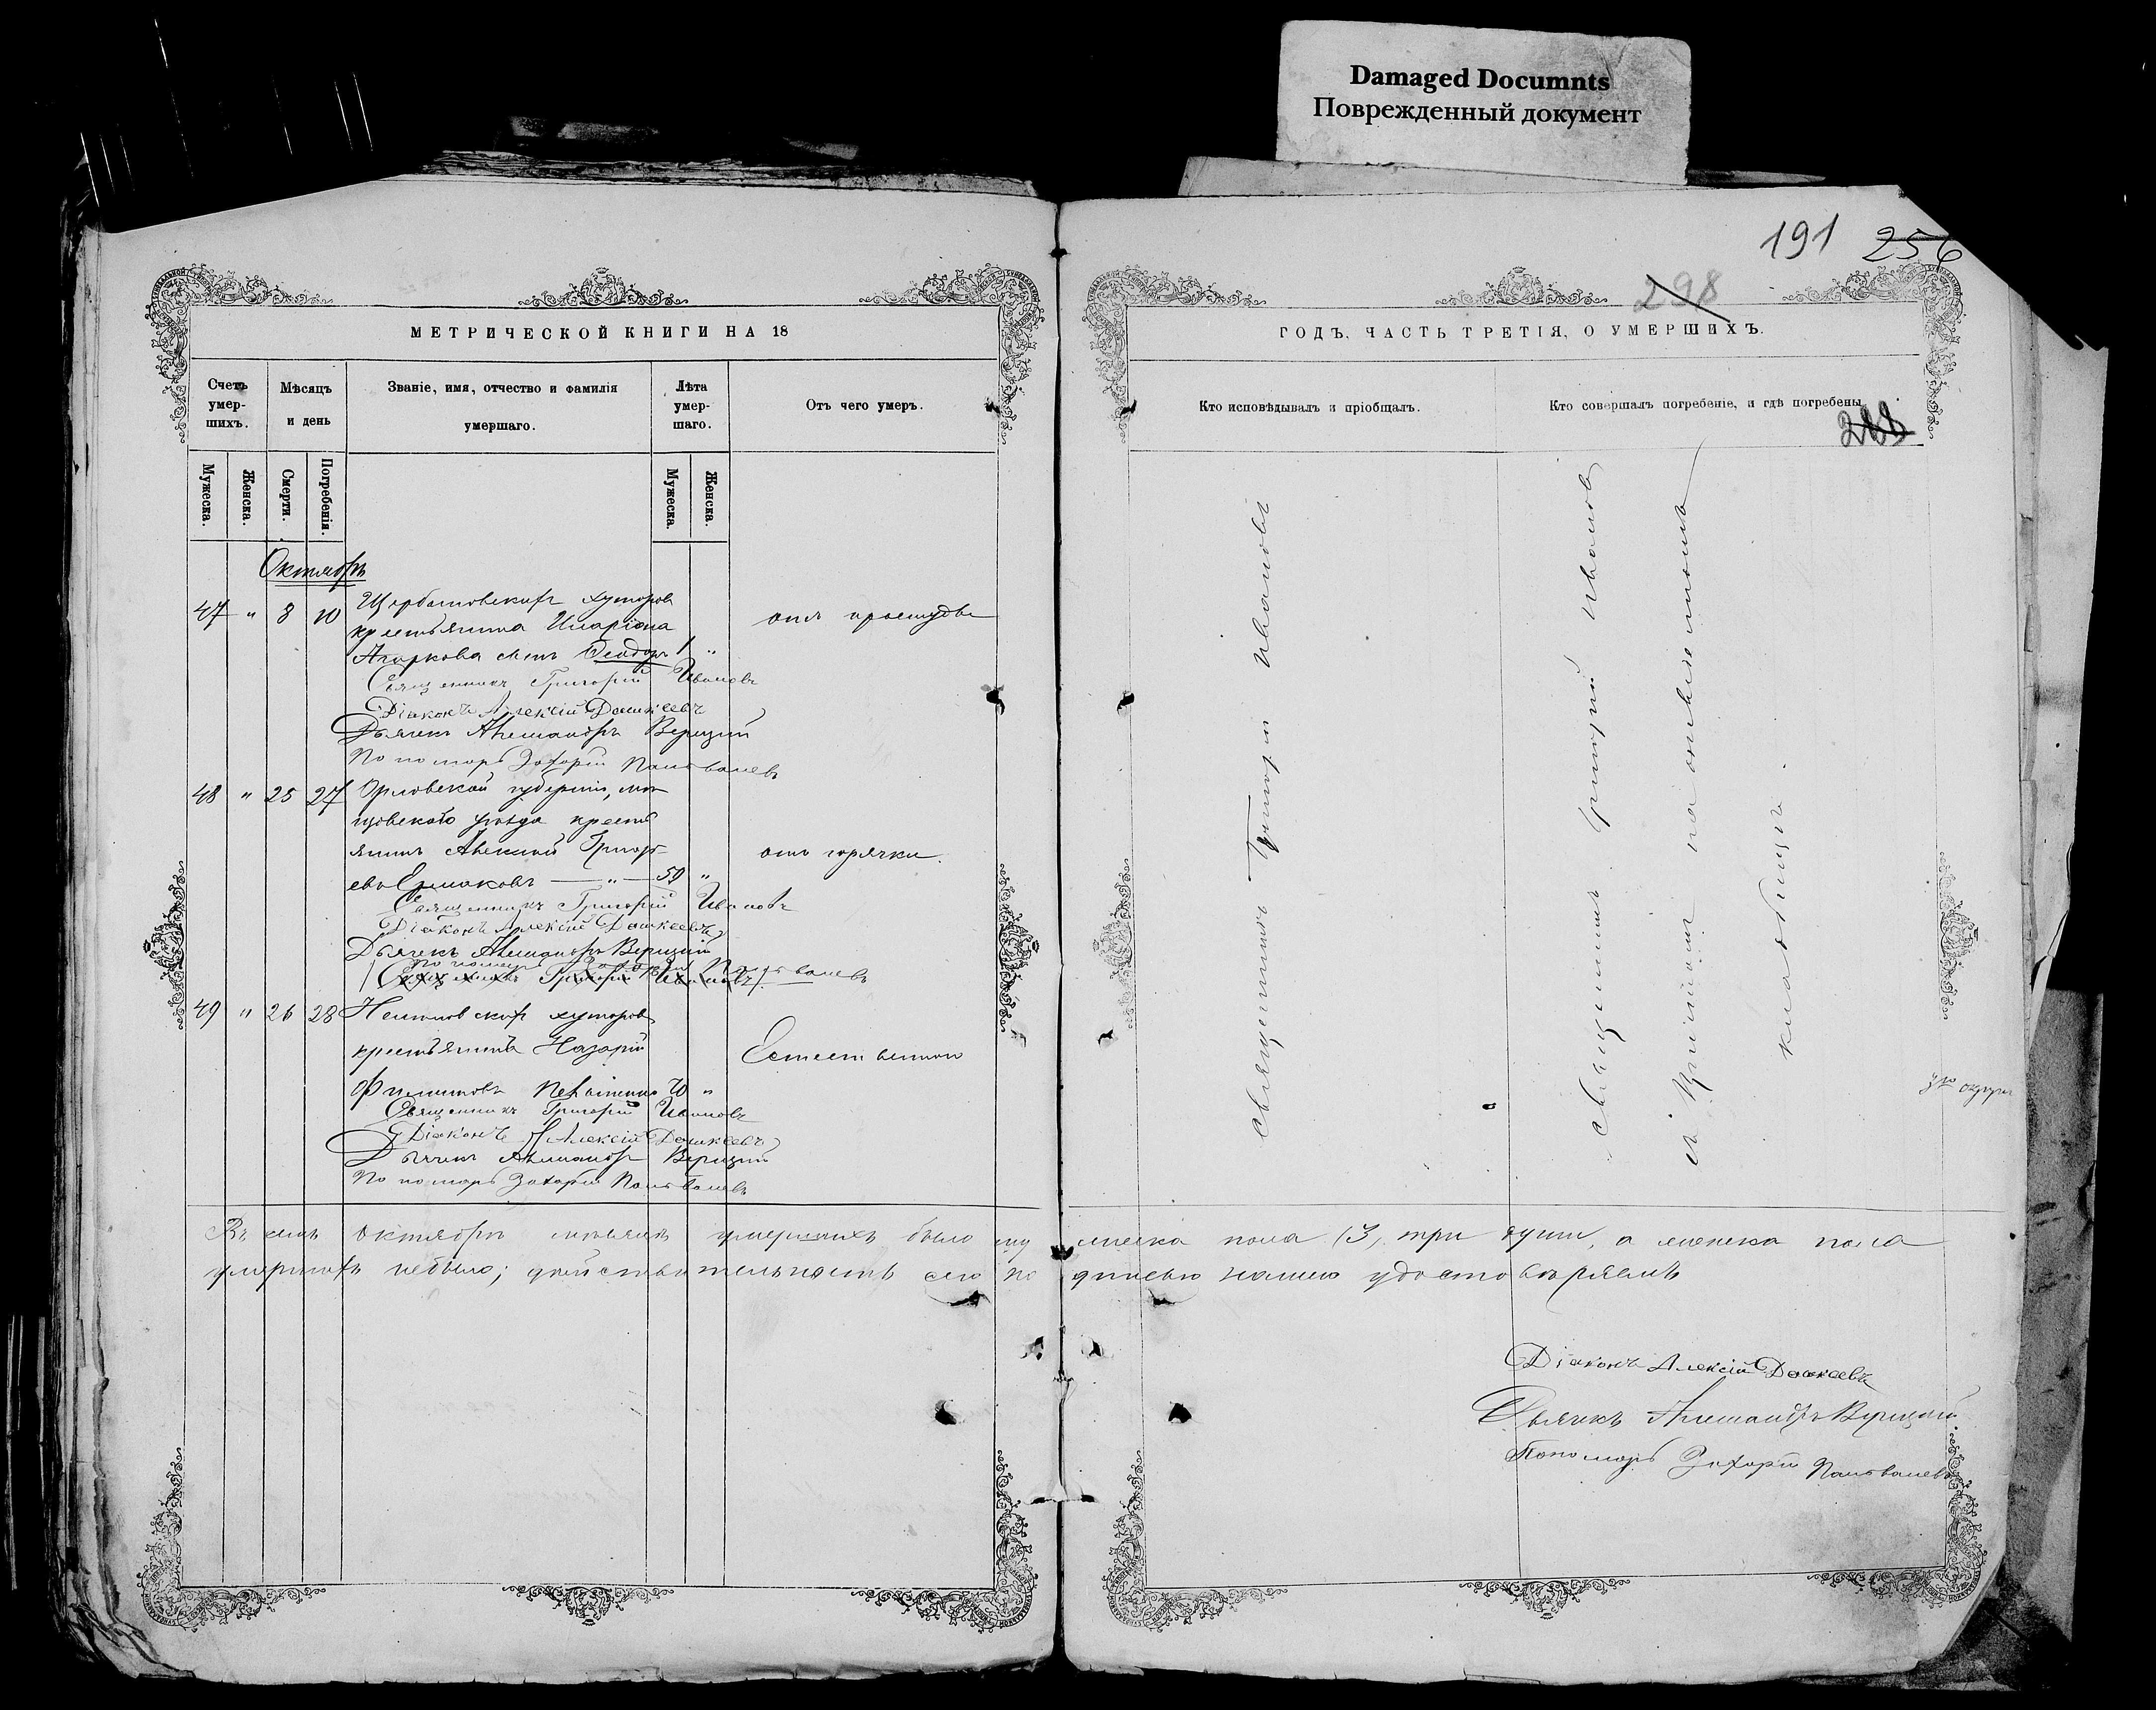 Damaged Documnts
Поврежденный документ
191 256
298
МЕТРИЧЕСКОЙ КНИГИ НА 18
Счетъ умер-шихъ.
Мѣсяцъ и день
Званіе, имя, отчество и фамилія умершаго.
Лѣта умер-шаго.
Отъ чего умеръ.
Мужеска.
Женска.
Смерти.
Погребенія.
Мужеска.
Женска.
Октябрь
47 " 8 10 Щербатовскихъ хуторовъ
крестьянина Иларіона
отъ простуды
Агаркова сынъ Ѳеодоръ 1 "
Священникъ Григорій Ивановъ
Діаконъ Алексій Дашкеевъ
Дьячекъ Александръ Верицкій
Пономарь Захарій
48 " 25 27 Орловской губерніи,
уѣзда кресть
янинъ Алексѣй Григорь-
отъ горячки.
евъ Ермаковъ — " — 59 "
Священникъ Григорій Ивановъ
Діаконъ Алексій Дашкеевъ
Дьячекъ Александръ Верицкій
Пономарь Захарій
Священникъ Григорій Ивановъ
49 " 26 28 хуторовъ
крестьянинъ Назарій
Естественно
Филиповъ 70 "
Священникъ Григорій Ивановъ
Діаконъ Алексій Дашкеевъ
Дьячекъ Александръ Верицкій
Пономарь Захарій
Въ семъ Октябрѣ мѣсяцѣ умершихъ было му
умершихъ небыло; дѣйствительность сего по
ГОДЪ, ЧАСТЬ ТРЕТІЯ, О УМЕРШИХЪ.
Кто исповѣдывалъ и пріобщалъ.
Кто совершалъ погребеніе, и гдѣ погребены
Священникъ Григорій Ивановъ
Священникъ Григорій Ивановъ
кладбищѣ.
жеска пола (3) три души, а женска пола
дписью нашею удостовѣряемъ
Діаконъ Алексій Дашкеевъ
Дьячекъ Александръ Верицкій
Пономарь Захарій